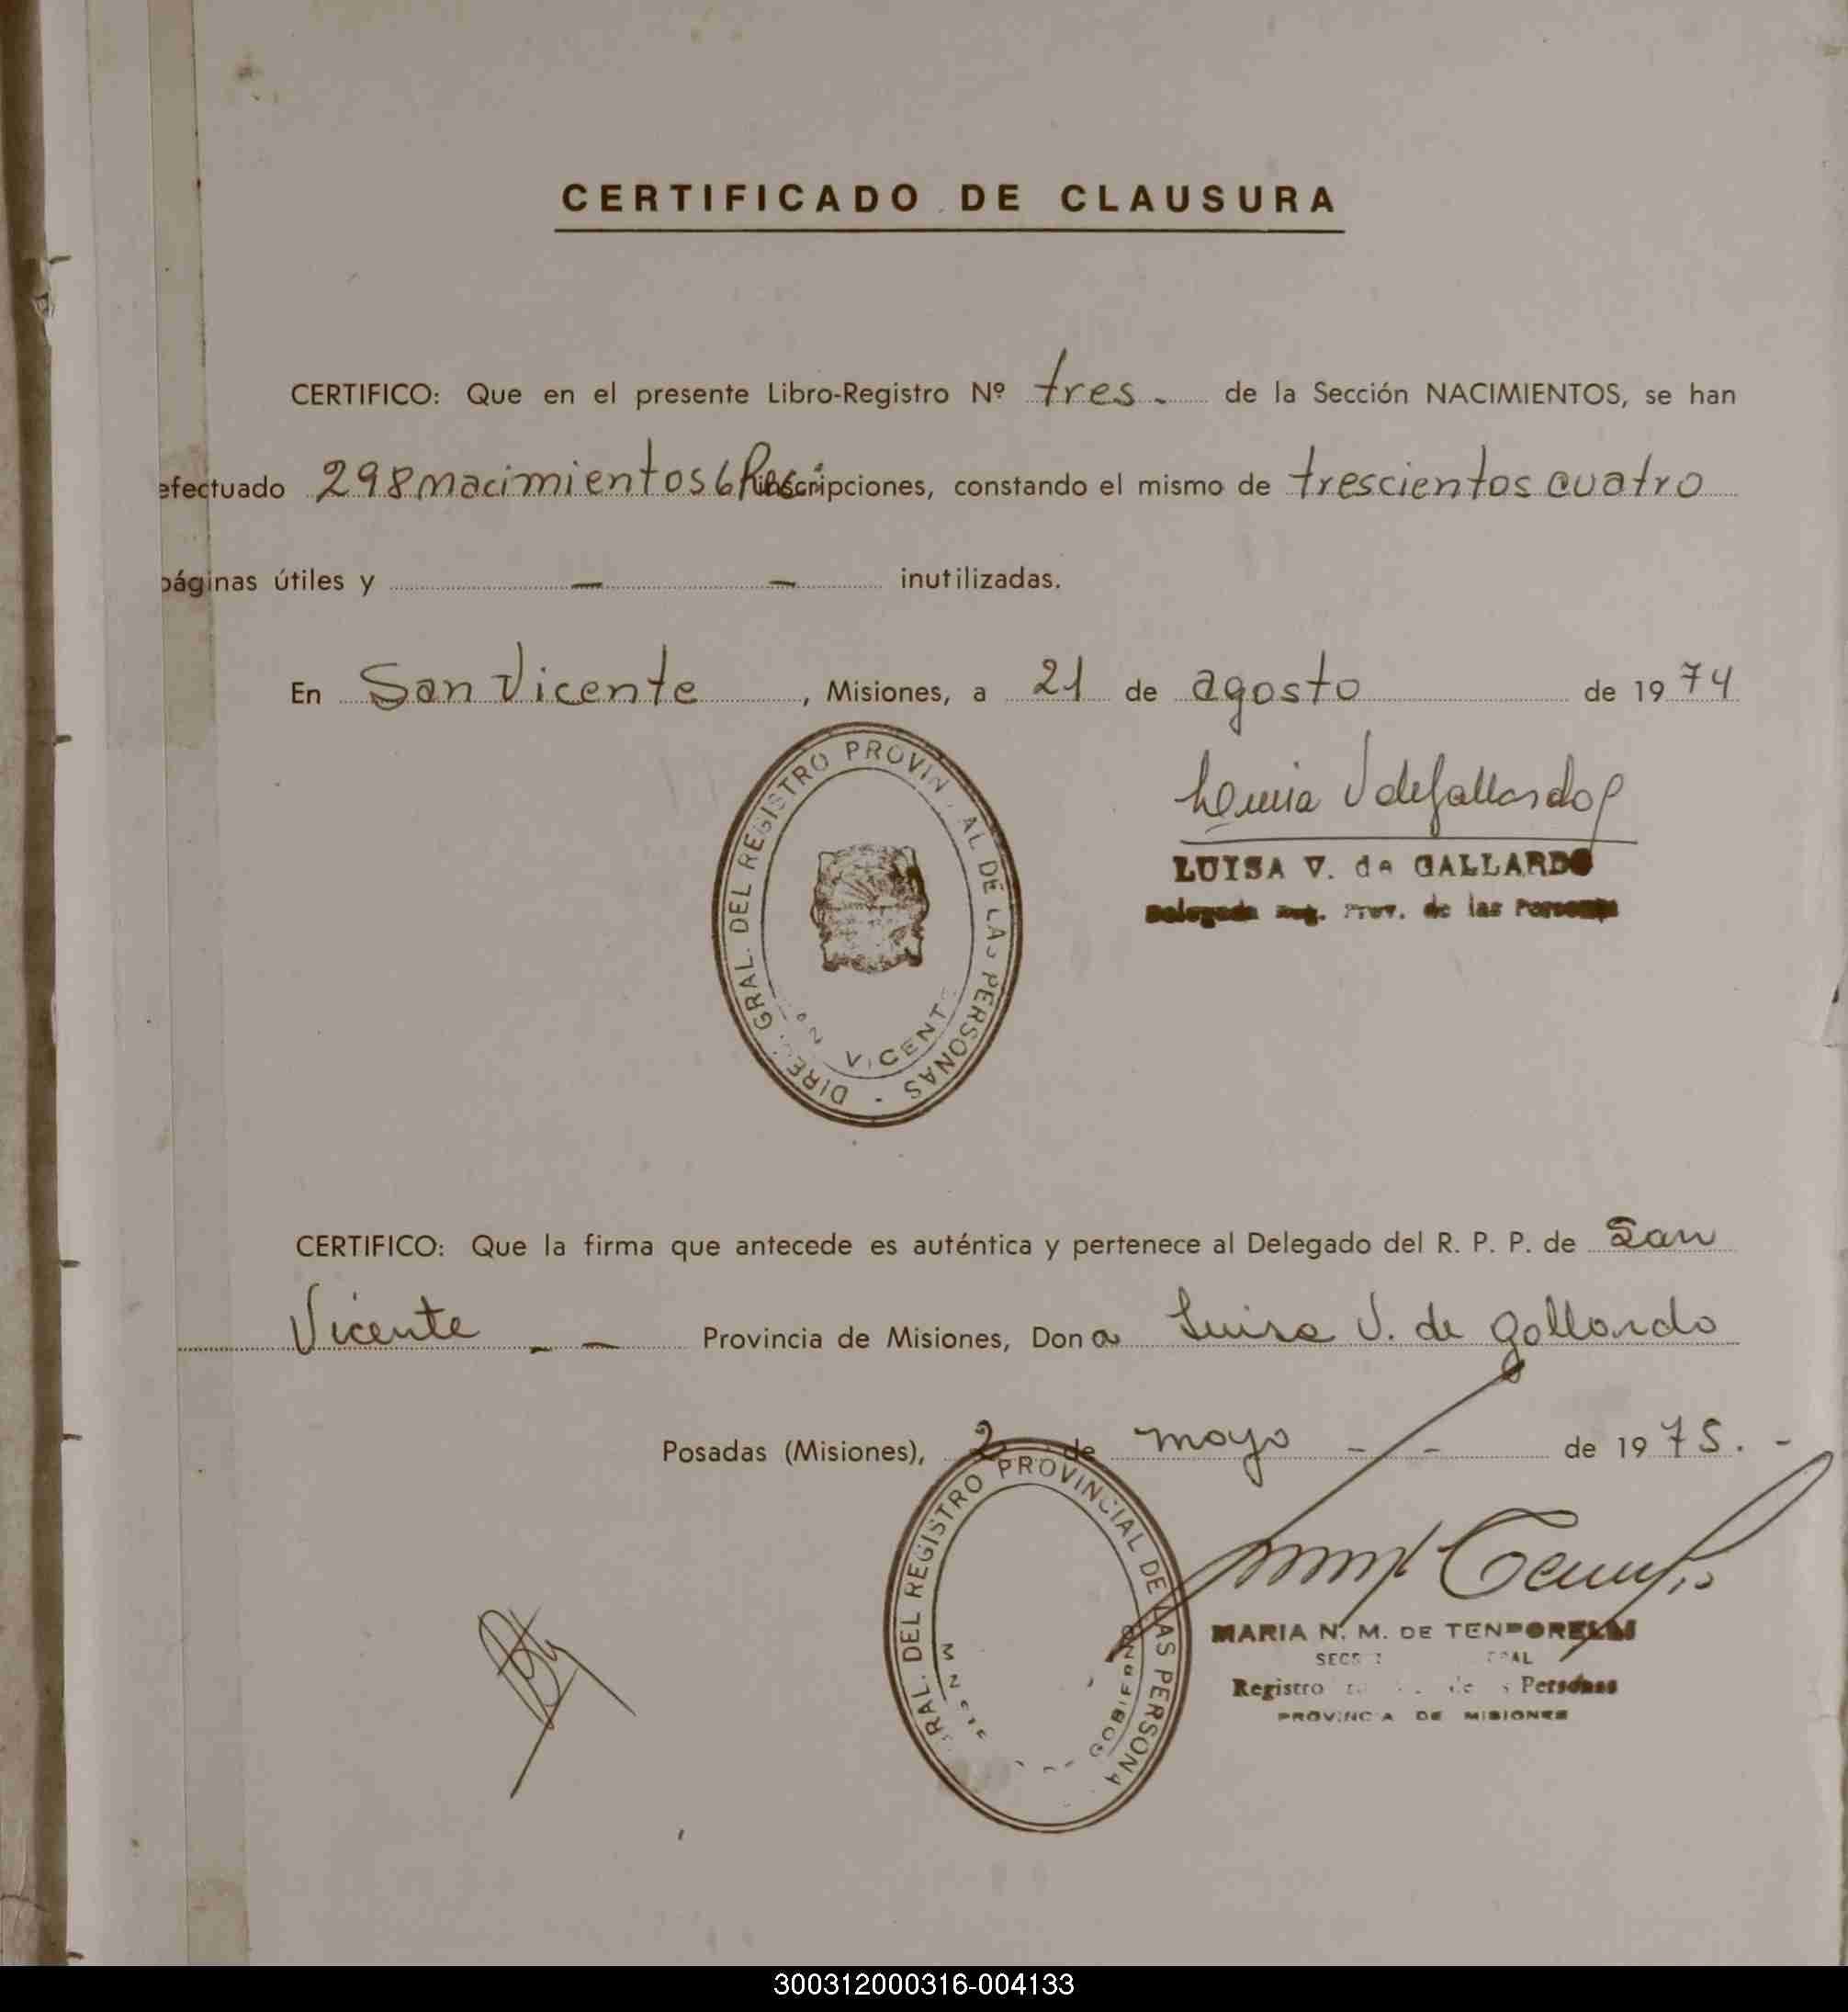 CERTIFICADO DE CLAUSURA
CERTIFICO: Que en el presente Libro-Registro Nº tres. de la Sección NACIMIENTOS, se han
efectuado 298 nacimientos 6 inscripciones, constando el mismo de trescientos cuatro
páginas útiles y — — inutilizadas.
En San Vicente, Misiones, a 21 de agosto de 1974
Luisa V de Gallardo
LUISA V. de GALLARDO
Delegada Reg. Prov. de las Personas
DIREC. GRAL. DEL REGISTRO PROVINCIAL DE LAS PERSONAS -
VICENTE
CERTIFICO: Que la firma que antecede es auténtica y pertenece al Delegado del R. P. P. de San
Vicente - — Provincia de Misiones, Dona Luisa V. de Gallardo
Posadas (Misiones), 2 de mayo - - de 1975. -
GRAL. DEL REGISTRO PROVINCIAL DE LAS PERSONA
GOBIERNO
MARIA N. M. DE TEMPORELLI
Registro Personas
PROVINCIA DE MISIONES
300312000316-004133